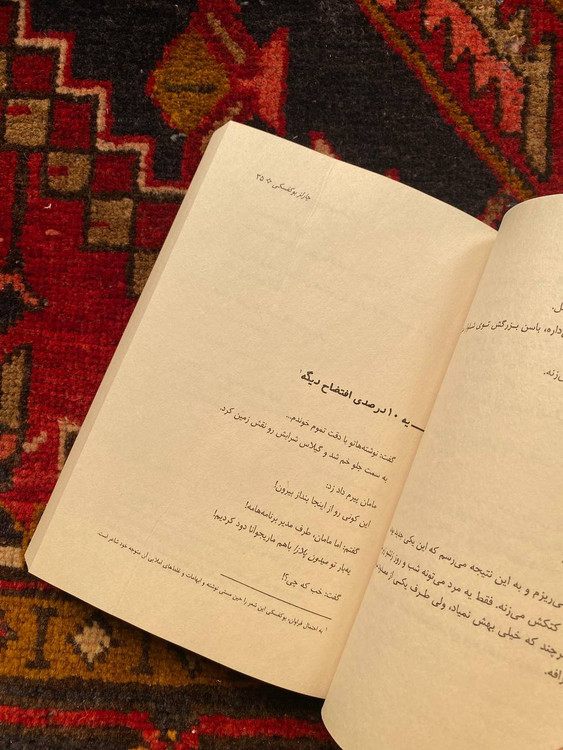 چارلز بوکفسکی ۳۵
یه ۱۰ درصدی افتضاح دیگه۱
گفت: نوشته‌هاتو با دقت تموم خوندم...
به سمت جلو خم شد و گیلاس شرابش رو نقش زمین کرد.
مامان پیرم داد زد:
این کونی رو از اینجا بنداز بیرون!
گفتم: اما مامان، طرف مدیر برنامه‌هامه!
یه‌بار تو میتون پلازا باهم ماریجوانا دود کردیم!
گفت: خب که چی؟!
۱ به احتمال فراوان، بوکفسکی این شعر را حین مستی نوشته و ابهامات و غلط‌های املایی آن متوجه خود شاعر است.
داره، باسن بزرگش توی
ی‌زنه.
ی‌ریزم و به این نتیجه می‌رسم که این یکی جدیه
کتکش می‌زنه. فقط یه مرد می‌تونه شب و روز
رچند که خیلی بهش نمیاد، ولی طرف یکی از
رافه.